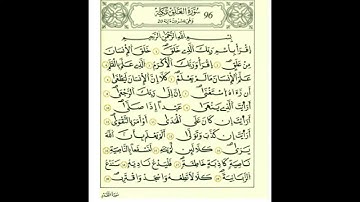 سُورَةُ الْعَلَقِ مَكِّيَّة 96
بِسْمِ اللَّهِ الرَّحْمَٰنِ الرَّحِيمِ
اِقْرَأْ بِاسْمِ رَبِّكَ الَّذِي خَلَقَ خَلَقَ الْإِنْسَانَ
مِنْ عَلَقٍ اِقْرَأْ وَرَبُّكَ الْأَكْرَمُ الَّذِي عَلَّمَ بِالْقَلَمِ
عَلَّمَ الْإِنْسَانَ مَا لَمْ يَعْلَمْ كَلَّا إِنَّ الْإِنْسَانَ لَيَطْغَىٰ
أَنْ رَآهُ اسْتَغْنَىٰ إِنَّ إِلَىٰ رَبِّكَ الرُّجْعَىٰ
أَرَأَيْتَ الَّذِي يَنْهَىٰ عَبْدًا إِذَا صَلَّىٰ
أَرَأَيْتَ إِنْ كَانَ عَلَى الْهُدَىٰ أَوْ أَمَرَ بِالتَّقْوَىٰ
أَرَأَيْتَ إِنْ كَذَّبَ وَتَوَلَّىٰ أَلَمْ يَعْلَمْ بِأَنَّ اللَّهَ
يَرَىٰ كَلَّا لَئِنْ لَمْ يَنْتَهِ لَنَسْفَعًا بِالنَّاصِيَةِ
نَاصِيَةٍ كَاذِبَةٍ خَاطِئَةٍ فَلْيَدْعُ نَادِيَهُ سَنَدْعُ
الزَّبَانِيَةَ كَلَّا لَا تُطِعْهُ وَاسْجُدْ وَاقْتَرِبْ